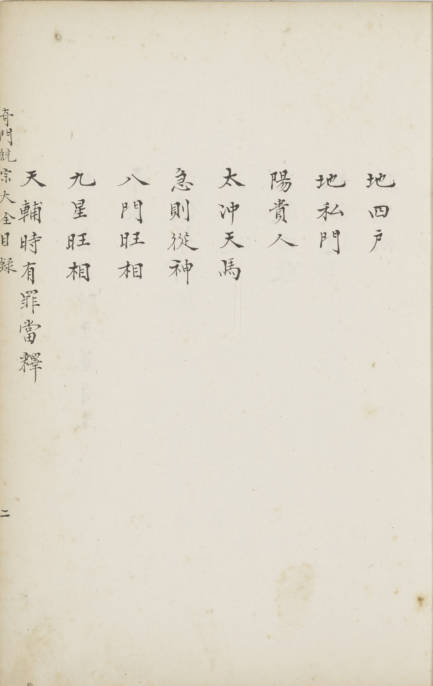 地四戶
地私門
陽貴人
太沖天馬
急則從神
八門旺相
九星旺相
天輔時有罪當釋
奇門統宗大全目録
二